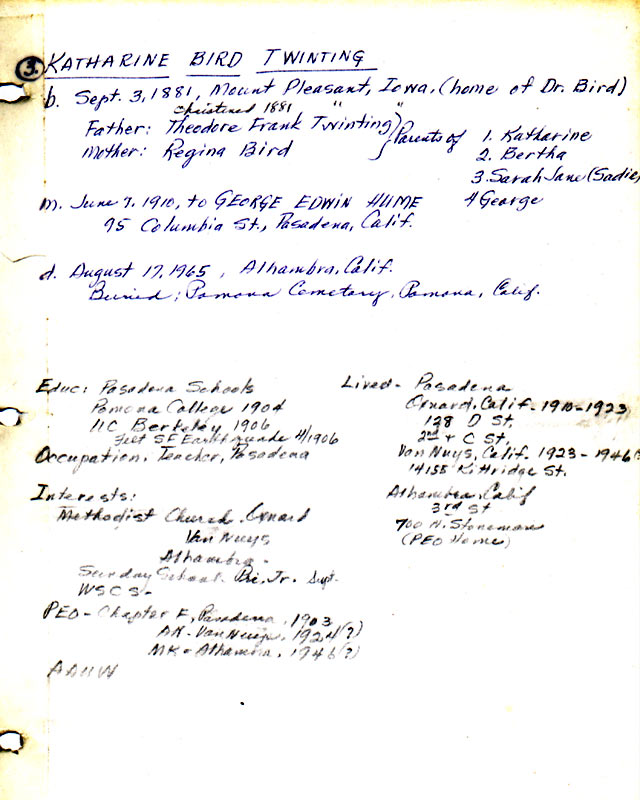 3. KATHARINE BIRD TWINTING
b. Sept. 3, 1881, Mount Pleasant, Iowa, (home of Dr. Bird)
Christened 1881 " "
Father: Theodore Frank Twinting } Parents of
Mother: Regina Bird
1. Katharine
2. Bertha
3. Sarah Jane (Sadie
4 George
m. June 7, 1910, to GEORGE EDWIN HUME
95 Columbia St., Pasadena, Calif.
d. August 17, 1965, Alhambra, Calif.
Buried; Pomona Cemetary, Pomona, Calif.
Educ: Pasadena Schools
Pomona College 1904
UC Berkeley 1906
Felt SF Earthquake 4/1906
Occupation. Teacher, Pasadena
Interests:
Methodist Church - Oxnard
Van Nuys
Alhambra -
Sunday School - Jr. Supt.
WSCS -
PEO - Chapter E, Pasadena, 1903
AK - Van Nuys, 1924 (?)
MK - Alhambra, 1946 (?)
AAUW
Lived - Pasadena
Oxnard, Calif. 1910 - 1923
138 D St.
2nd + C St.
Van Nuys, Calif. 1923 - 1946
14158 Kittridge St.
Alhambra, Calif
3rd St
700 N. Stoneman
(PEO Home)